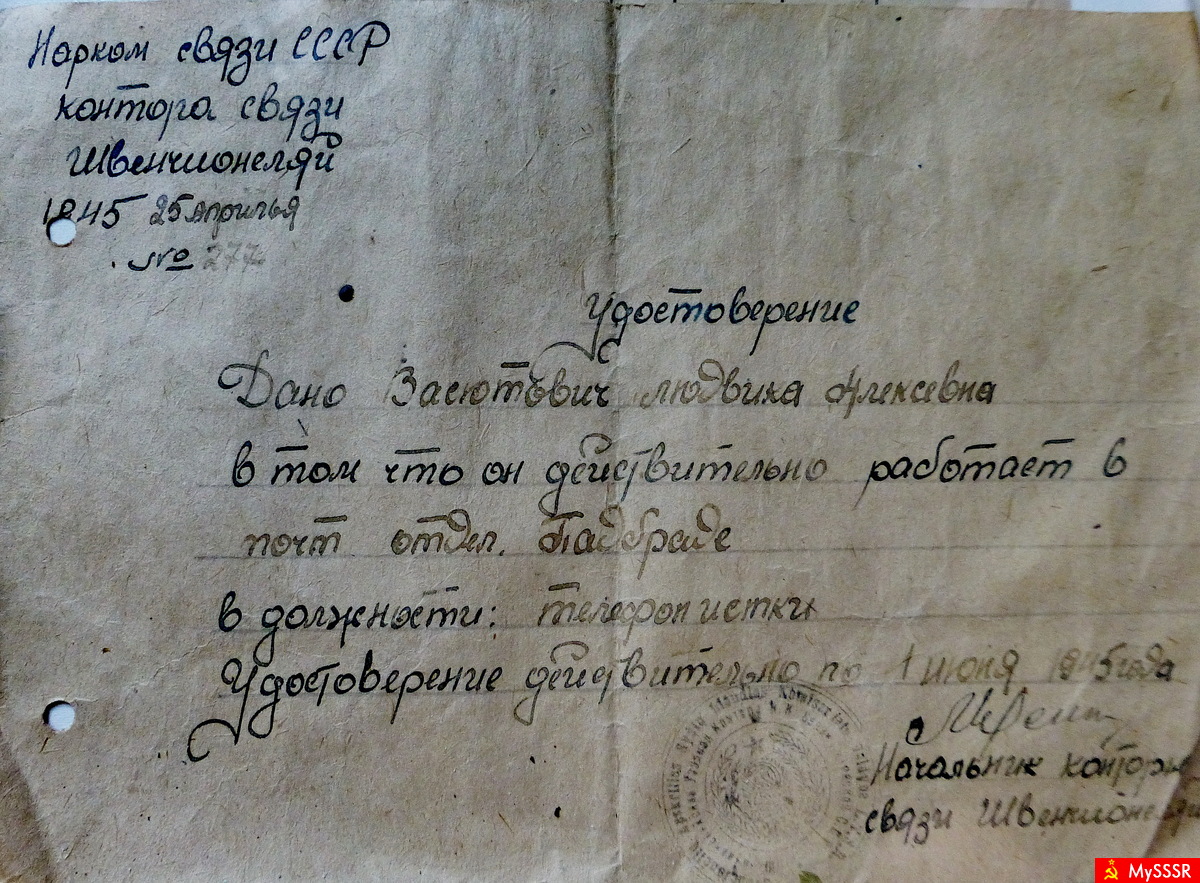 Нарком связи СССР
контора связи
Швенчионеляй
1945 25 Апрылья
№ 277
Удостоверение
Дано Засютович Людвика Алексевна
в том что он действительно работает в
почт отдел. Падбраде
в должности: телефонистки
Удостоверение действительно по 1 июня 1945 года
Начальник конторы
связи Швенчионеляй
MySSSR